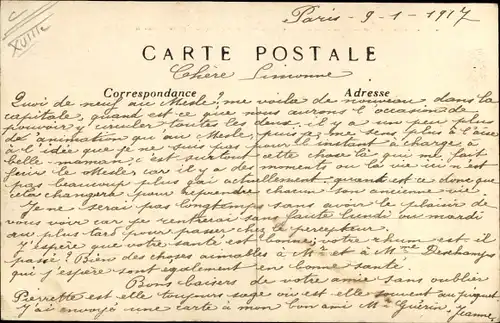 XVIIIe
Paris - 9 - 1 - 1917
CARTE POSTALE
Chère Simonne
Correspondance Adresse
Quoi de neuf au Mesle? me voila de nouveau dans la
capitale, quand est ce que nous aurons l'occasion de
pouvoir y circuler toutes les deux, il y a un peu plus
d'animation qu'au Mesle, puis je me sens plus à l'aise
à l'idée que je ne suis pas pour l'instant à charge à
belle maman; c'est surtout cette chose là qui me fait
fuir le Mesle car il y a des moments où la vie n'y est
pas beaucoup plus gai actuellement, quand est ce donc que
cela changera pour reprendre chacun son ancienne vie
Je ne serai pas longtemps sans avoir le plaisir de
vous voir car je rentrerai sans faute lundi ou mardi
au plus tard pour passer chez le percepteur.
J'espère que votre santé est bonne; votre rhum est-il
passé? Bien des choses aimables à Mr et à Mme Deschamps
qui j'espère sont également en bonne santé.
Bons baisers de votre amie sans oublier
Pierrette est elle toujours sage où est elle souvent au
j'ai envoyé une carte à mon bon ami Mr Guérin, Jeanne